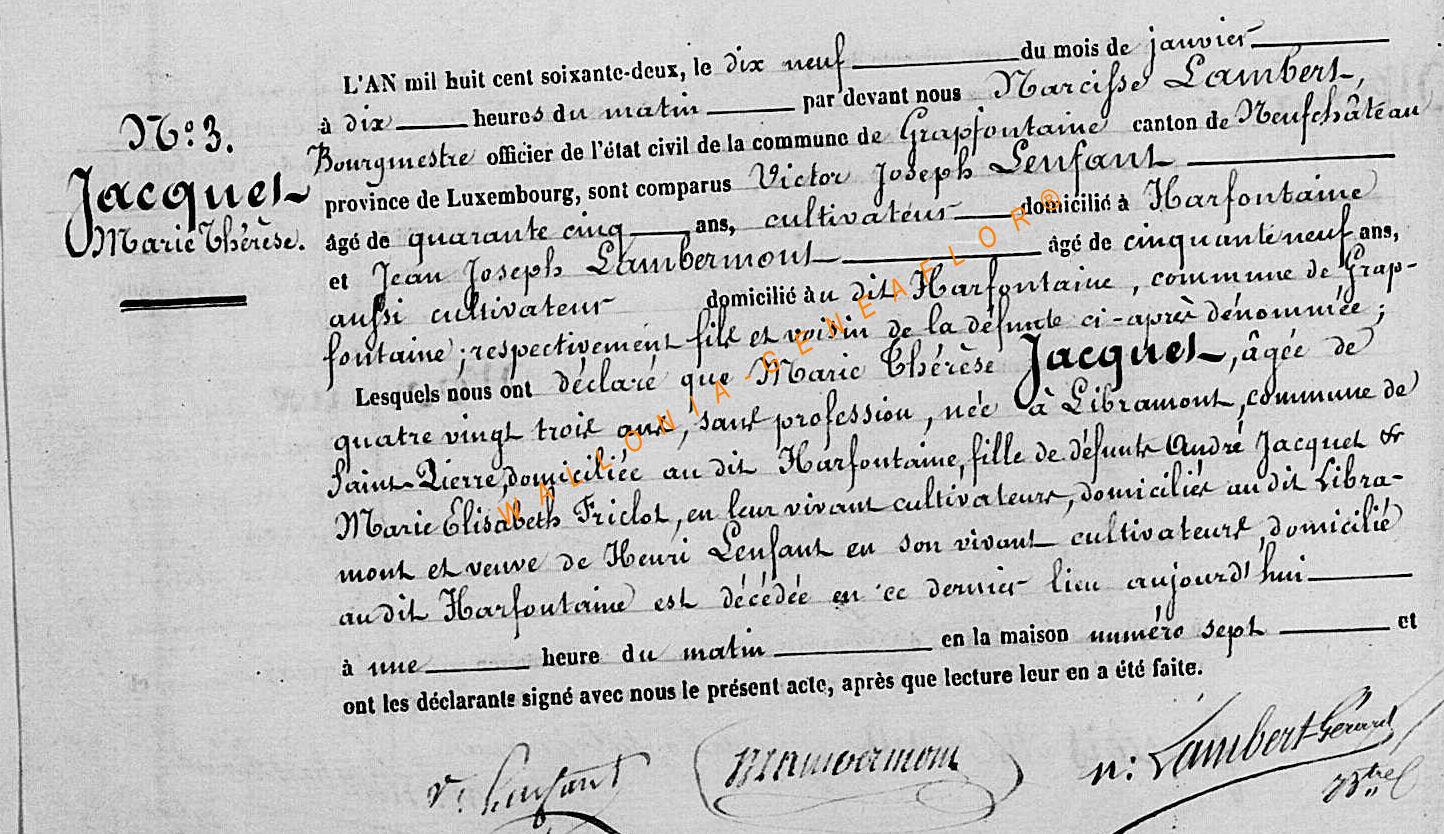 N°. 3.
Jacquet
Marie Thérèse.
L'AN mil huit cent soixante-deux, le dix neuf du mois de janvier
à dix heures du matin par devant nous Narcisse Lambert,
Bourgmestre officier de l'état civil de la commune de Grapfontaine canton de Neufchâteau
province de Luxembourg, sont comparus Victor Joseph Lenfant
âgé de quarante cinq ans, cultivateur domicilié à Harfontaine
et Jean Joseph Lambermont âgé de cinquante neuf ans,
aussi cultivateur domicilié au dit Harfontaine, commune de Grap-
fontaine; respectivement fils et voisin de la défunte ci-après dénommée;
Lesquels nous ont déclaré que Marie Thérèse Jacquet, âgée de
quatre vingt trois ans, sans profession, née à Libramont, commune de
Saint-Pierre, domiciliée au dit Harfontaine, fille de défunts André Jacquet &
Marie Elisabeth Friclot, en leur vivant cultivateurs, domiciliés au dit Libra-
mont et veuve de Henri Lenfant en son vivant cultivateur, domicilié
au dit Harfontaine est décédée en ce dernier lieu aujourd'hui
à une heure du matin en la maison numéro sept et
ont les déclarants signé avec nous le présent acte, après que lecture leur en a été faite.
V. Lenfant
n: Lambert-Gérard
WALLONIA-GENEAFLOR®